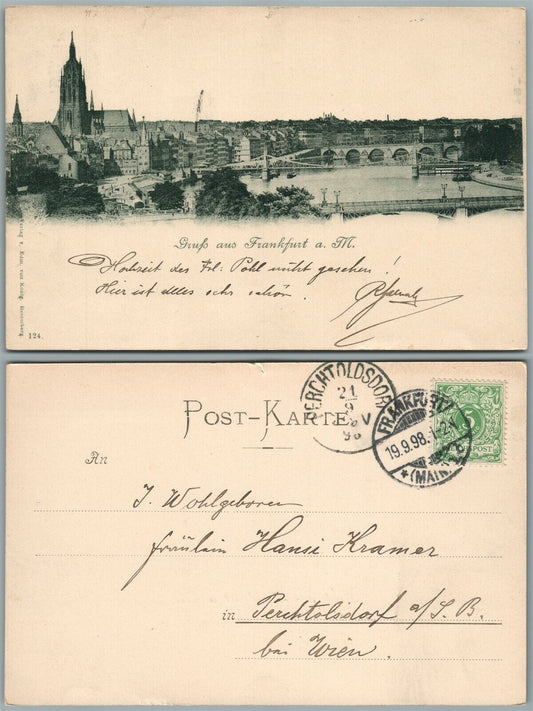 Gruß aus Frankfurt a. M.
Hochzeit des Frl: Pohl nicht gesehen!
Hier ist alles sehr schön.
Verlag v. Edm. von König, Heidelberg.
124.
PERCHTOLDSDORF
21
9
V
98
FRANKFURT
19.9.98.
(MAIN)
5
REICHSPOST
POST-KARTE
An
J. Wohlgeboren
Fräulein Hansi Kramer
in Perchtolsdorf a/S. B.
bei Wien.